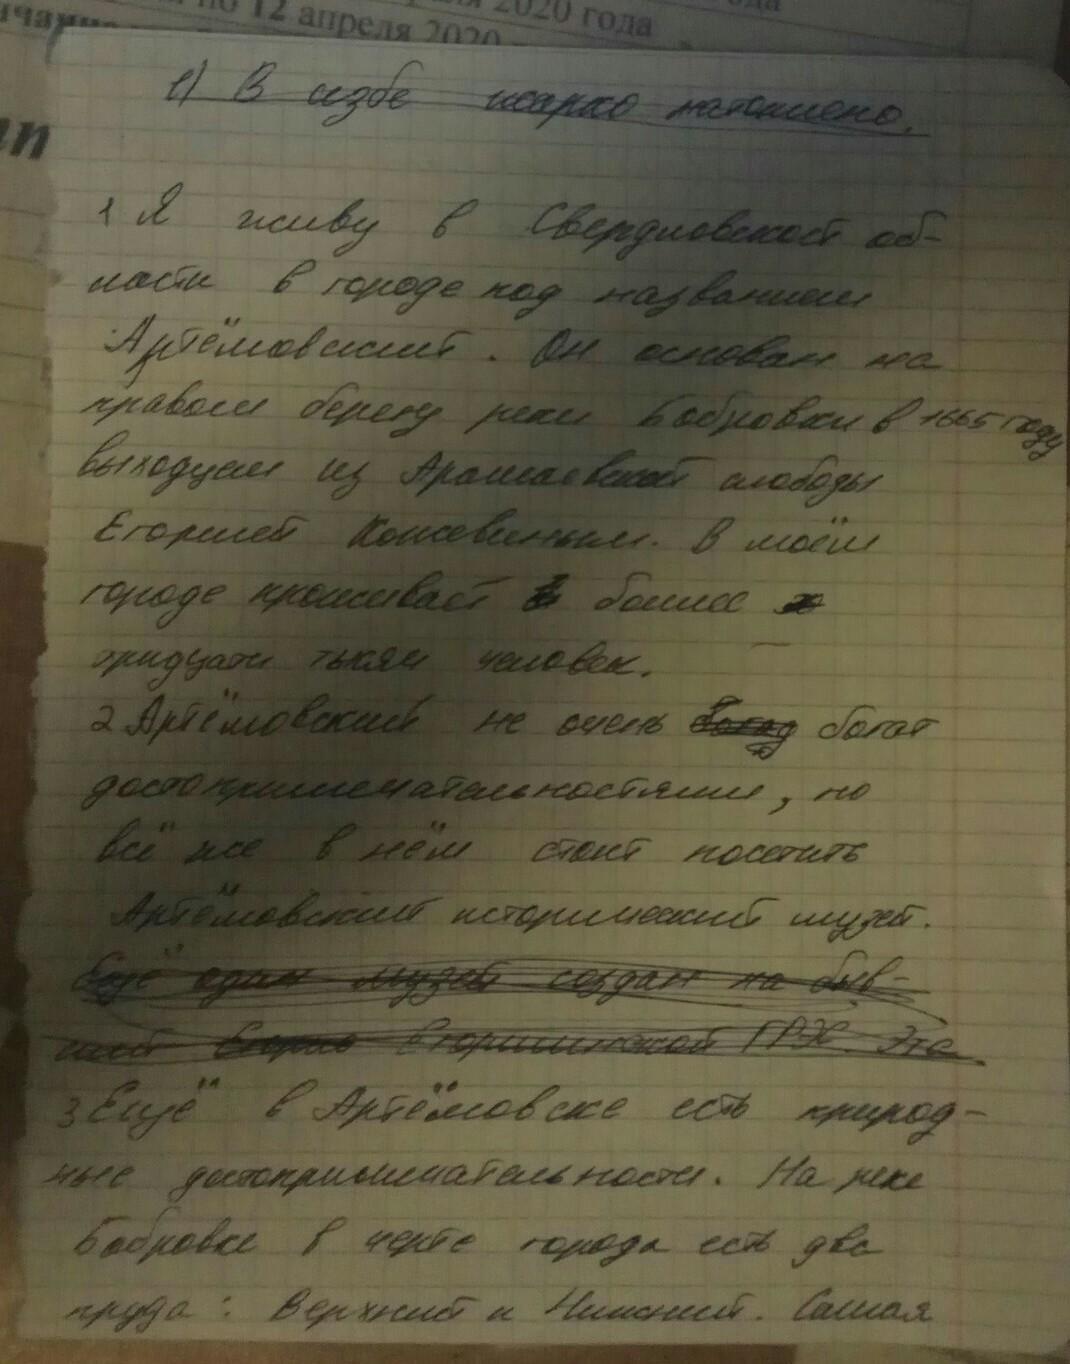 2020 года
по 12 апреля 2020
е) В избе жарко натоплено.
1 Я живу в Свердловской об-
ласти в городе под названием
Артёмовский. Он основан на
правом берегу реки Бобровки в 1665 году
выходцем из Арамаевской слободы
Егоршей Кожевиным. В моём
городе проживает более
тридцати тысяч человек.
2 Артёмовский не очень богат
достопримечательностями, но
всё же в нём стоит посетить
Артёмовский исторический музей.
Ещё один музей создан на быв-
шей Егоршинской ГРЭС. Это
3 Ещё в Артёмовске есть природ-
ные достопримечательности. На реке
Бобровке в черте города есть два
пруда: Верхний и Нижний. Самая